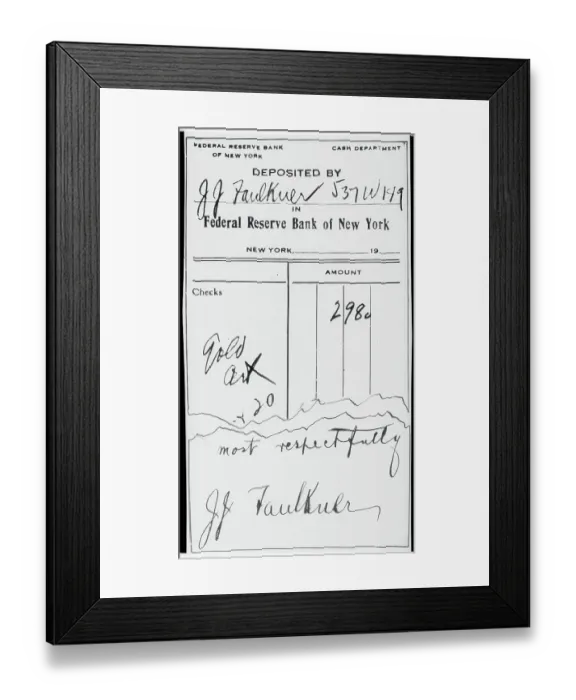 FEDERAL RESERVE BANK
OF NEW YORK
CASH DEPARTMENT
DEPOSITED BY
JJ Faulkner 537 W 149
IN
Federal Reserve Bank of New York
NEW YORK 19
AMOUNT
Checks
2980
Gold
20
most respectfully
JJ Faulkner